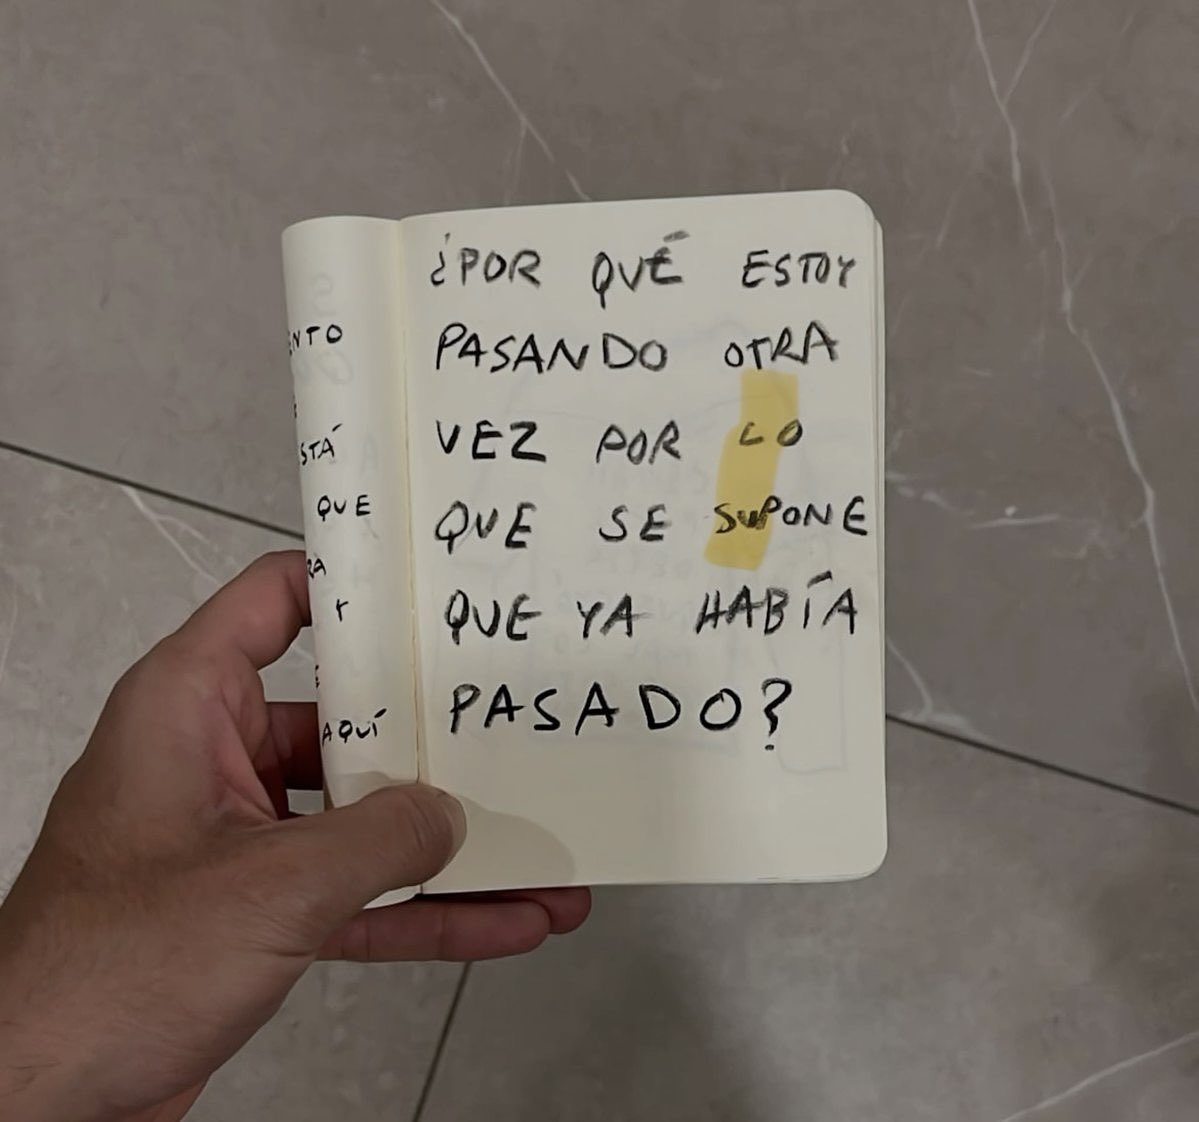 QUE
Y
AQUÍ
¿POR QUÉ ESTOY
PASANDO OTRA
VEZ POR LO
QUE SE SUPONE
QUE YA HABÍA
PASADO?